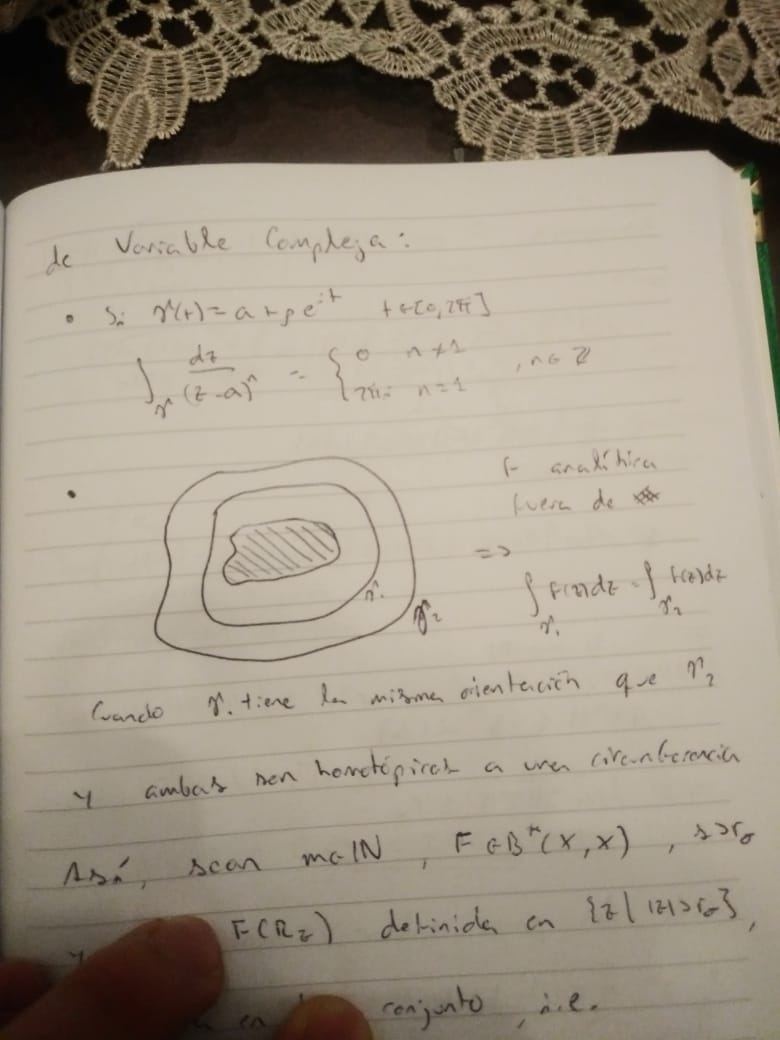 de Variable Compleja:
• Si γ(t) = a + ρ e^{it} t ∈ [0, 2π]
∫_γ dz/(z-a)^n = { 0 n ≠ 1 , n ∈ ℤ
2πi n = 1
F analítica
fuera de
=>
∫_{γ₁} F(z)dz = ∫_{γ₂} F(z)dz
γ₁
γ₂
Cuando γ₁ tiene la misma orientación que γ₂
y ambas son homotópicas a una circunferencia
Así, sean m ∈ ℕ , F ∈ B*(X,X) , s > r_σ
y F(R_z) definida en {z | |z| > r_σ},
en conjunto, i.e.